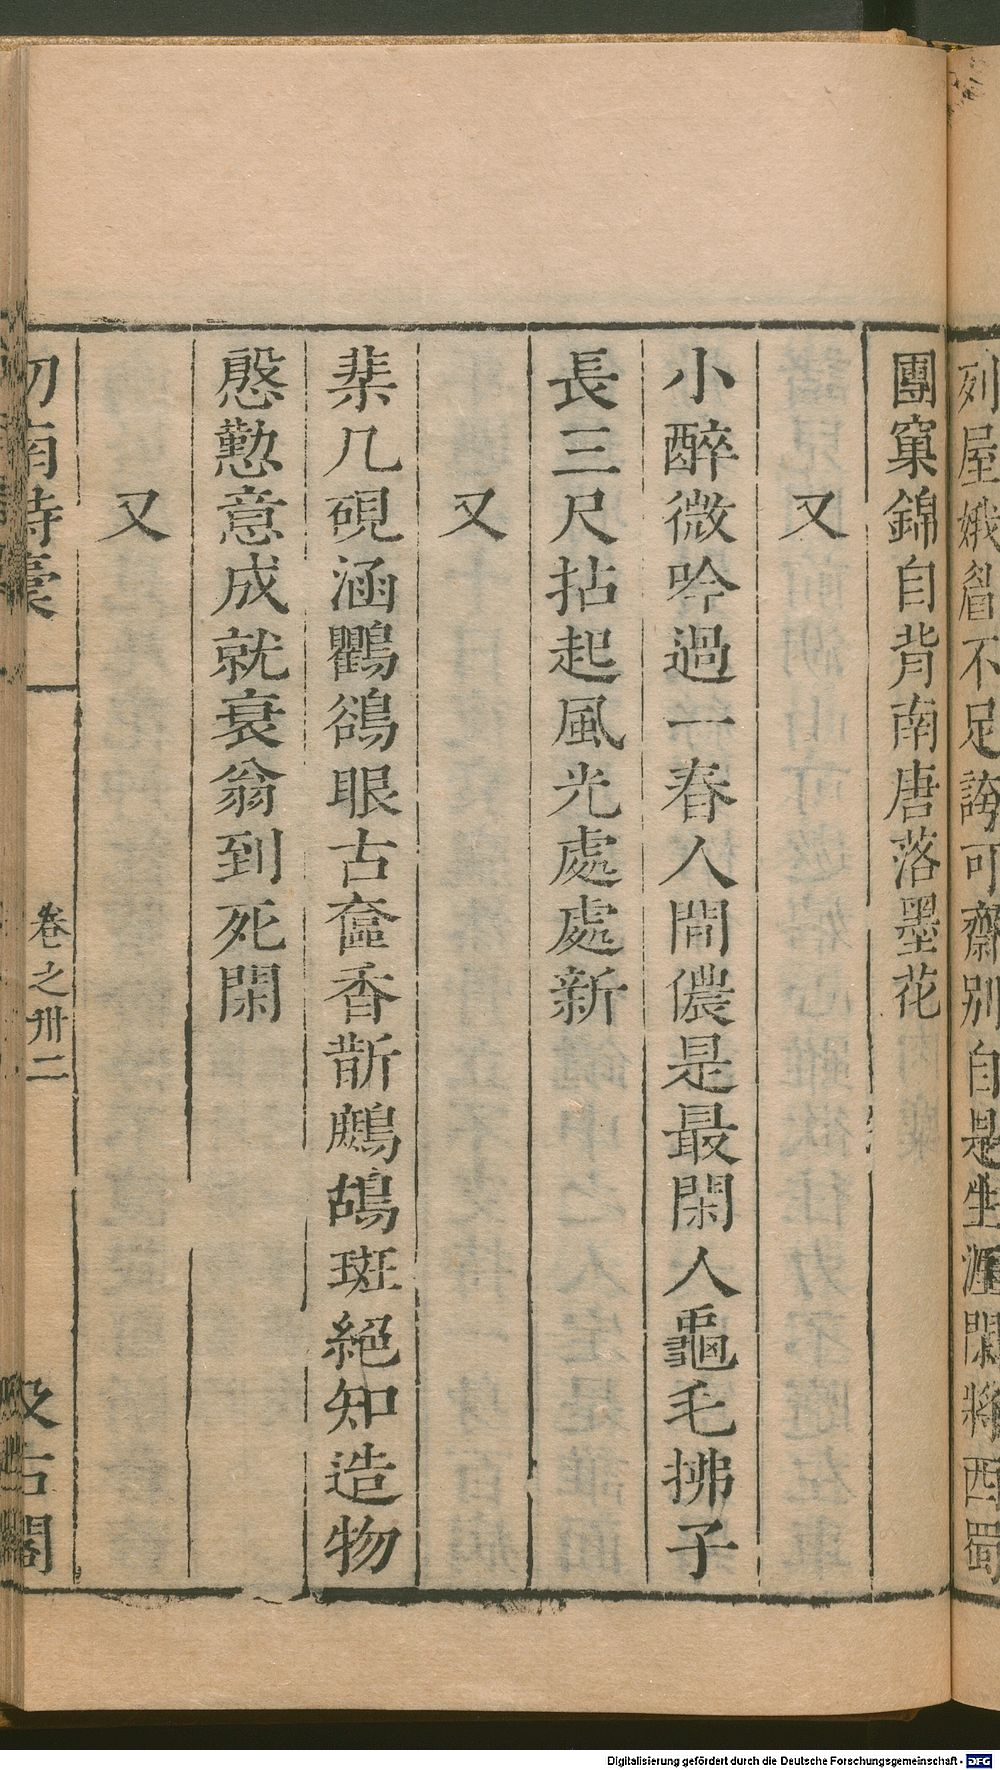 列屋娥眉不足誇可齋别自是生涯閑將西蜀
團窠錦自背南唐落墨花
又
小醉微吟過一春人間儂是最閑人龜毛拂子
長三尺拈起風光處處新
又
棐几硯涵鸜鵒眼古奩香斮鷓鴣斑絕知造物
慇懃意成就衰翁到死閑
又
劍南詩稾
卷之卅二
汲古閣
Digitalisierung gefördert durch die Deutsche Forschungsgemeinschaft - DFG